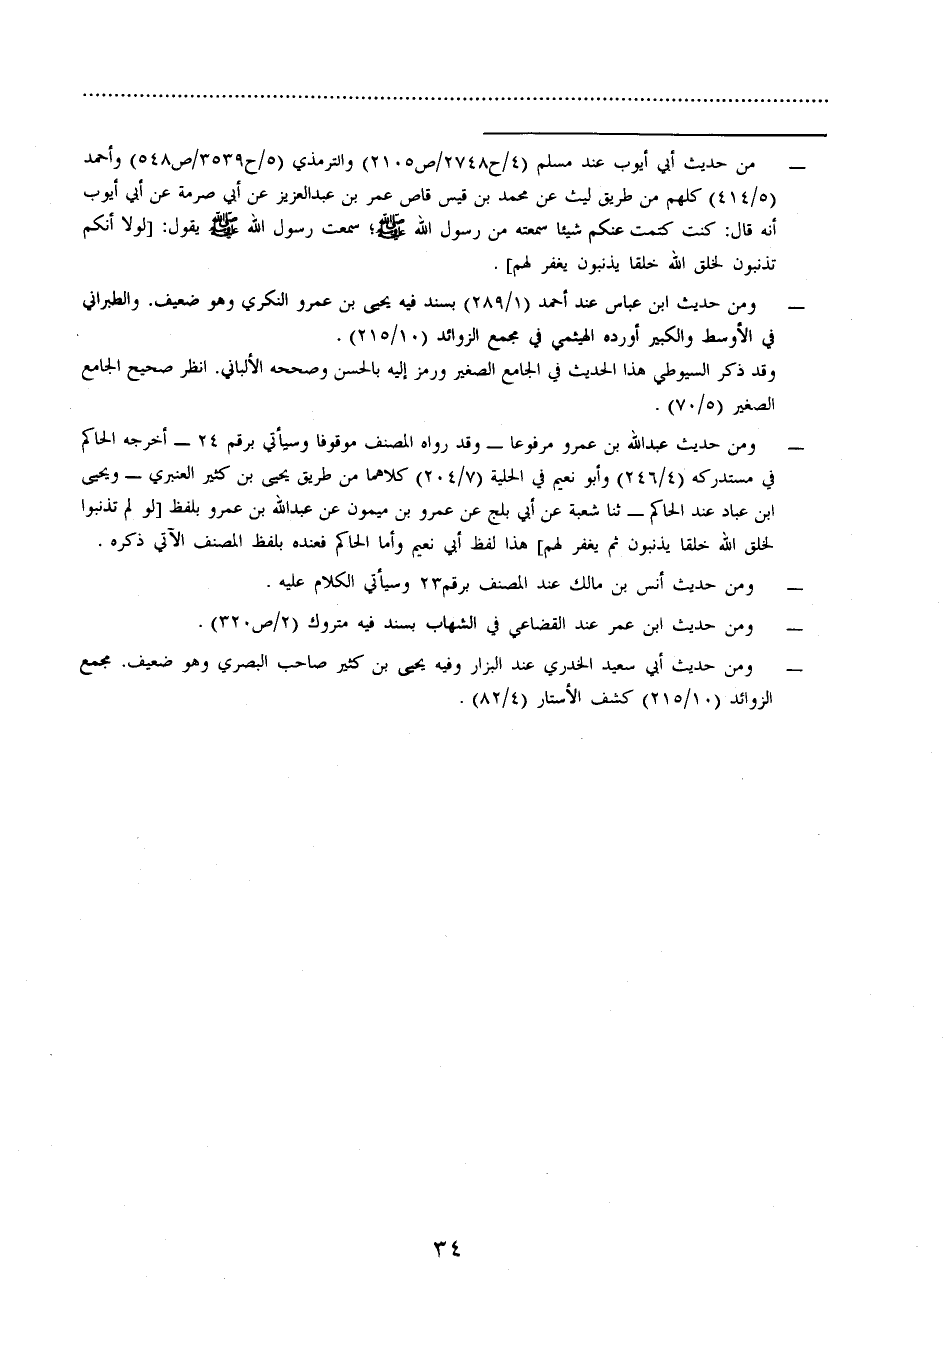 ..........................................................................................
— من حديث أبي أيوب عند مسلم (٤/ح٢٧٤٨/ص٢١٠٥) والترمذي (٥/ح٣٥٣٩/ص٥٤٨) وأحمد
(٤١٤/٥) كلهم من طريق ليث عن محمد بن قيس قاص عمر بن عبدالعزيز عن أبي صرمة عن أبي أيوب
أنه قال: كنت كتمت عنكم شيئا سمعته من رسول الله ﷺ؛ سمعت رسول الله ﷺ يقول: [لولا أنكم
تذنبون لخلق الله خلقا يذنبون يغفر لهم] .
— ومن حديث ابن عباس عند أحمد (٢٨٩/١) بسند فيه يحيى بن عمرو النكري وهو ضعيف. والطبراني
في الأوسط والكبير أورده الهيثمي في مجمع الزوائد (٢١٥/١٠) .
وقد ذكر السيوطي هذا الحديث في الجامع الصغير ورمز إليه بالحسن وصححه الألباني. انظر صحيح الجامع
الصغير (٧٠/٥) .
— ومن حديث عبدالله بن عمرو مرفوعا — وقد رواه المصنف موقوفا وسيأتي برقم ٢٤ — أخرجه الحاكم
في مستدركه (٢٤٦/٤) وأبو نعيم في الحلية (٢٠٤/٧) كلاهما من طريق يحيى بن كثير العنبري — ويحيى
ابن عباد عند الحاكم — ثنا شعبة عن أبي بلج عن عمرو بن ميمون عن عبدالله بن عمرو بلفظ [لو لم تذنبوا
لخلق الله خلقا يذنبون ثم يغفر لهم] هذا لفظ أبي نعيم وأما الحاكم فعنده بلفظ المصنف الآتي ذكره .
— ومن حديث أنس بن مالك عند المصنف برقم٢٣ وسيأتي الكلام عليه .
— ومن حديث ابن عمر عند القضاعي في الشهاب بسند فيه متروك (٢/ص٣٢٠) .
— ومن حديث أبي سعيد الخدري عند البزار وفيه يحيى بن كثير صاحب البصري وهو ضعيف. مجمع
الزوائد (٢١٥/١٠) كشف الأستار (٨٢/٤) .
٣٤